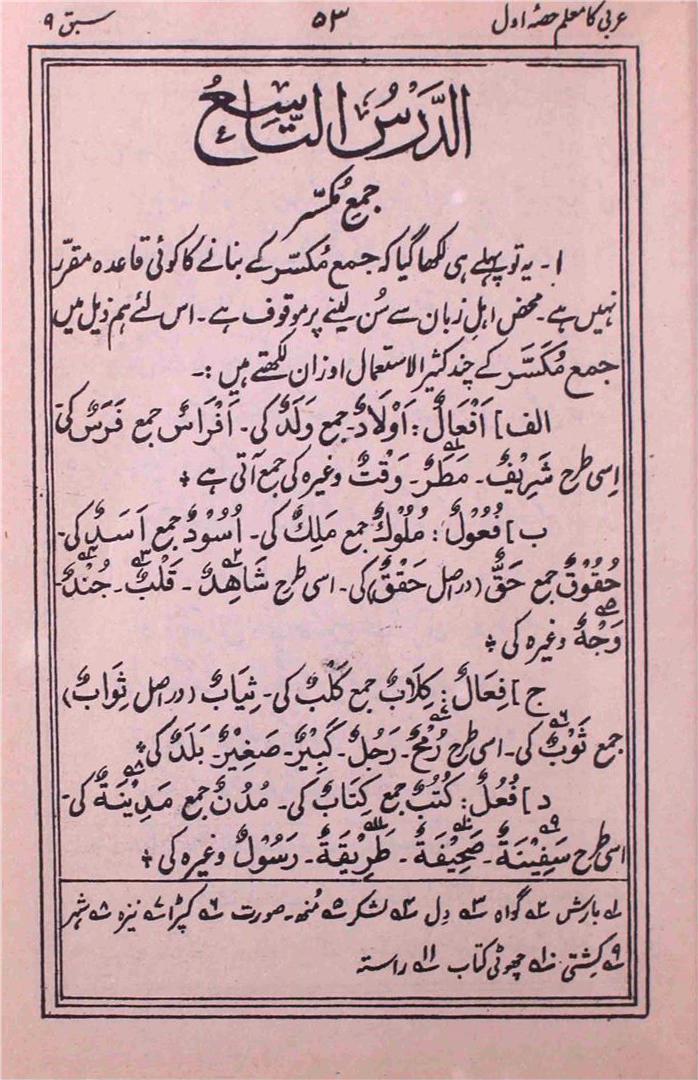 عربی کا معلم حصۂ اول ۵۳ سبق ۹
الدَّرْسُ التَّاسِعُ
جمعِ مُکسّر
۱۔ یہ تو پہلے ہی لکھا گیا کہ جمع مُکسّر کے بنانے کا کوئی قاعدہ مقرّر
نہیں ہے۔ محض اہلِ زبان سے سُن لینے پر موقوف ہے۔ اس لئے ہم ذیل میں
جمع مُکَسَّر کے چند کثیر الاستعمال اوزان لکھتے ہیں :۔
الف] اَفْعَالٌ: اَوْلَادٌ جمع وَلَدٌ کی۔ اَفْرَاسٌ جمع فَرَسٌ کی
اِسی طرح شَرِیْفٌ۔ مَطَرٌ۱؎۔ وَقْتٌ وغیرہ کی جمع آتی ہے +
ب] فُعُوْلٌ: مُلُوْكٌ جمع مَلِكٌ کی۔ اُسُوْدٌ جمع اَسَدٌ کی۔
حُقُوْقٌ جمع حَقٌّ (در اصل حَقْقٌ) کی۔ اسی طرح شَاهِدٌ۲؎۔ قَلْبٌ۳؎۔ جُنْدٌ۴؎۔
وَجْهٌ۵؎ وغیرہ کی +
ج] فِعَالٌ: كِلَابٌ جمع كَلْبٌ کی۔ ثِيَابٌ (در اصل ثِوَابٌ)
جمع ثَوْبٌ۶؎ کی۔ اسی طرح رُمْحٌ۷؎۔ رَجُلٌ۔ كَبِيْرٌ۔ صَغِيْرٌ۔ بَلَدٌ۸؎ کی +
د] فُعُلٌ: كُتُبٌ جمع كِتَابٌ کی۔ مُدُنٌ جمع مَدِيْنَةٌ۸؎ کی۔
اسی طرح سَفِيْنَةٌ۹؎۔ صَحِيْفَةٌ۱۰؎۔ طَرِيْقَةٌ۱۱؎۔ رَسُوْلٌ وغیرہ کی +
۱؎ بارش ۲؎ گواہ ۳؎ دِل ۴؎ لشکر ۵؎ مُنھ۔ صورت ۶؎ کپڑا ۷؎ نیزہ ۸؎ شہر
۹؎ کشتی ۱۰؎ چھوٹی کتاب ۱۱؎ راستہ